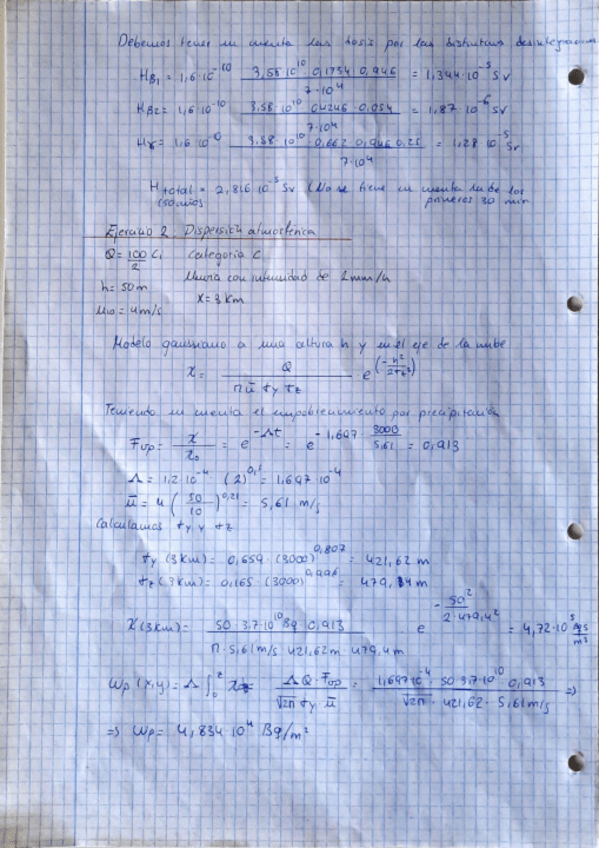 Debemos tener en cuenta las dosis por las distintas desintegraciones
Hβ1 = 1,6·10^-10 (3,58·10^10 · 0,1734 · 0,946) / (7·10^4) = 1,344·10^-5 Sv
Hβ2 = 1,6·10^-10 (3,58·10^10 · 0,4246 · 0,054) / (7·10^4) = 1,87·10^-6 Sv
Hγ = 1,6·10^-10 (3,58·10^10 · 0,662 · 0,946 · 0,25) / (7·10^4) = 1,28·10^-5 Sv
Htotal = 2,816·10^-5 Sv (No se tiene en cuenta la de los
(50 años) primeros 30 min
Ejercicio 2. Dispersión atmosférica
Q = 100/2 Ci Categoría C
Lluvia con intensidad de 2 mm/h
h = 50 m X = 3 Km
μ10 = 4 m/s
Modelo gaussiano a una altura h y en el eje de la nube
χ = Q / (π ū σy σz) e^(-h²/2σz²)
Teniendo en cuenta el empobrecimiento por precipitación
Fwp = χ/χ0 = e^-Λt = e^(-1,697 · 3000/5,61) = 0,913
Λ = 1,2·10^-4 · (2)^0,5 = 1,697·10^-4
ū = 4 (50/10)^0,21 = 5,61 m/s
Calculamos σy y σz
σy (3Km) = 0,659 · (3000)^0,807 = 421,62 m
σz (3Km) = 0,165 · (3000)^0,996 = 479,4 m
χ(3Km) = (50 · 3,7·10^10 Bq · 0,913) / (π · 5,61 m/s · 421,62 m · 479,4 m) · e^(-50²/2·479,4²) = 4,72·10^5 Bq s/m³
Wp (x,y) = Λ ∫0^z χz = (Λ Q · Fwp) / (√2π σy ū) = (1,697·10^-4 · 50 · 3,7·10^10 · 0,913) / (√2π · 421,62 · 5,61 m/s) =>
=> Wp = 4,834·10^4 Bq/m²